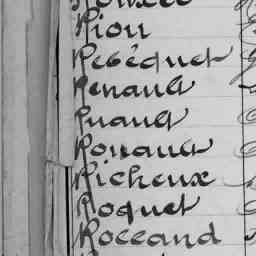 Rion
Rebéquet
Renault
Ruault
Rouault
Richeux
Roquet
Roccand